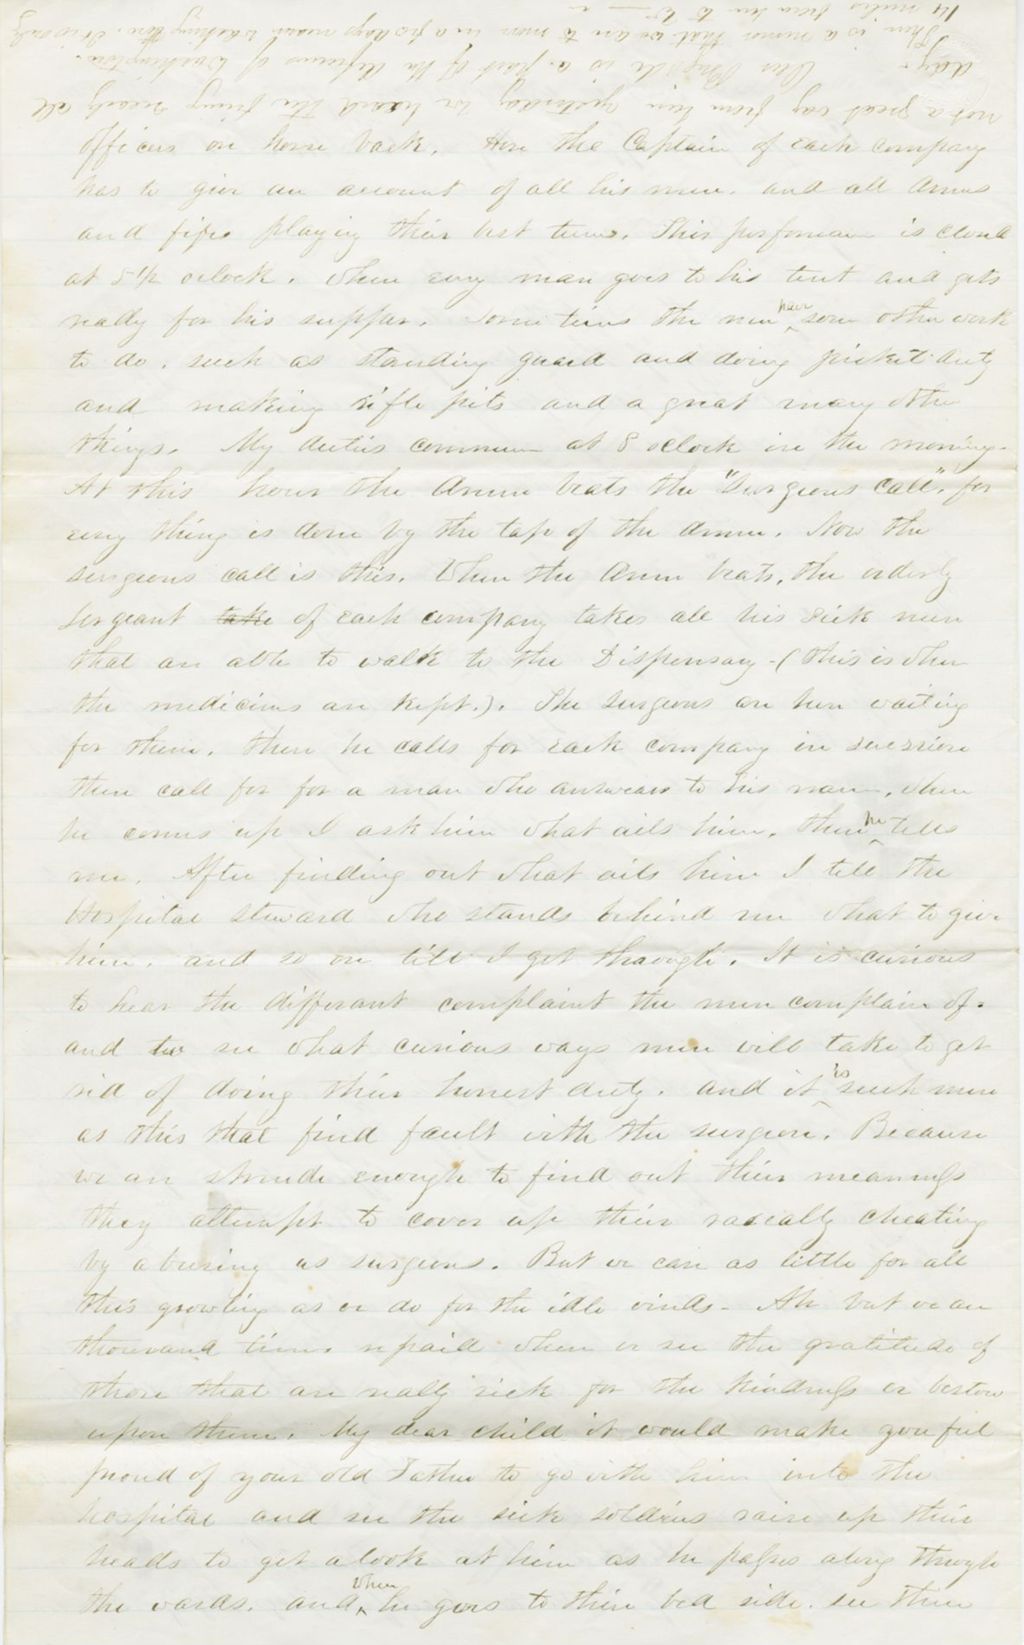 not a great way from him yesterday we heard the firing nearly all
day. Our Brigade is a part of the defences of Washington.
There is a rumor that we are to move in a few days
14 miles from here to
officers on horse back. Here the Captain of each company
has to give an account of all his men. and all drums
and fifes playing their best tunes. This performance is closed
at 5 1/2 oclock. When every man goes to his tent and gets
ready for his supper. Some times the men have some other work
to do. such as standing guard and doing picket duty
and making rifle pits and a great many other
things. My duties commence at 8 oclock in the morning.
At this hour the drum beats the "Surgeons Call". for
every thing is done by the tap of the drum. Now the
surgeons call is this. When the drum beats, the orderly
Sergeant take of each company takes all his sick men
that are able to walk to the Dispensary - (this is where
the medicines are kept.). The surgeons are here waiting
for them. then he calls for each company in succession
then call for for a man who answears to his name. when
he comes up I ask him what ails him. then he tells
me. After finding out what ails him I tell the
Hospital Steward who stands behind me what to give
him. and so on till I get through. It is curious
to hear the differant complaint the men complain of.
and to see what curious ways men will take to get
rid of doing their honest duty. and it is such men
as this that find fault with the surgeon. Because
we are shrude enough to find out their meanness
they attempt to cover up their rascally cheating
by abusing us surgeons. But we care as little for all
this growling as we do for the idle winds - Ah but we are
thousand times repaid when we see the gratitude of
those that are really sick for the kindness we bestow
upon them. My dear child it would make you feel
proud of your old Father to go with him into the
hospital and see the sick soldiers raise up their
heads to get a look at him as he passes along through
the wards. and when he goes to their bed side. see them